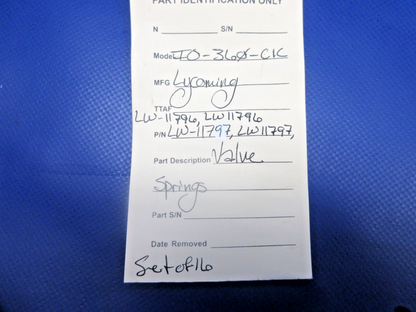 PART IDENTIFICATION ONLY
N S/N
Model IO-360-C1C
MFG Lycoming
TTAF
LW-11796, LW11796
P/N LW-11797, LW11797,
Part Description Valve
Springs
Part S/N
Date Removed
Set of 16